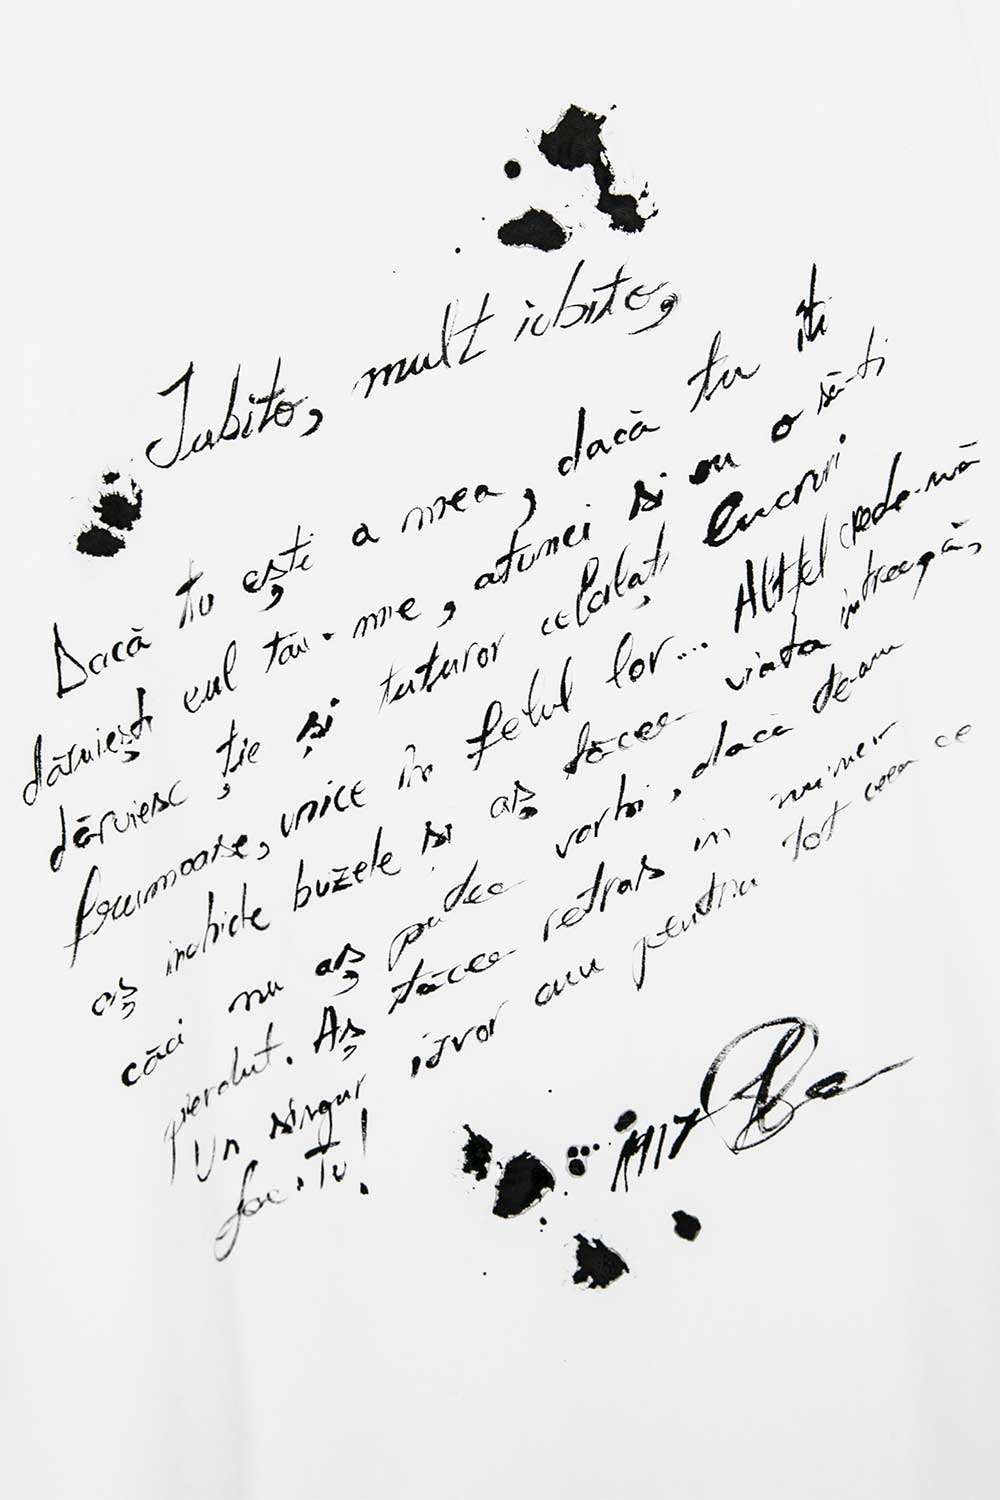 Iubito, mult iubito,
Dacă tu ești a mea, dacă tu îți
dăruiești eul tău mie, atunci și eu o să-ți
dăruiesc ție și tuturor celorlalți lucruri
frumoase, unice în felul lor... Altfel crede-mă
aș închide buzele și aș tăcea viața întreagă,
căci nu aș putea vorbi, dacă te-am
pierdut. Aș tăcea retras în nimer
Un singur izvor am pentru tot ceea ce
fac. Tu!
1917